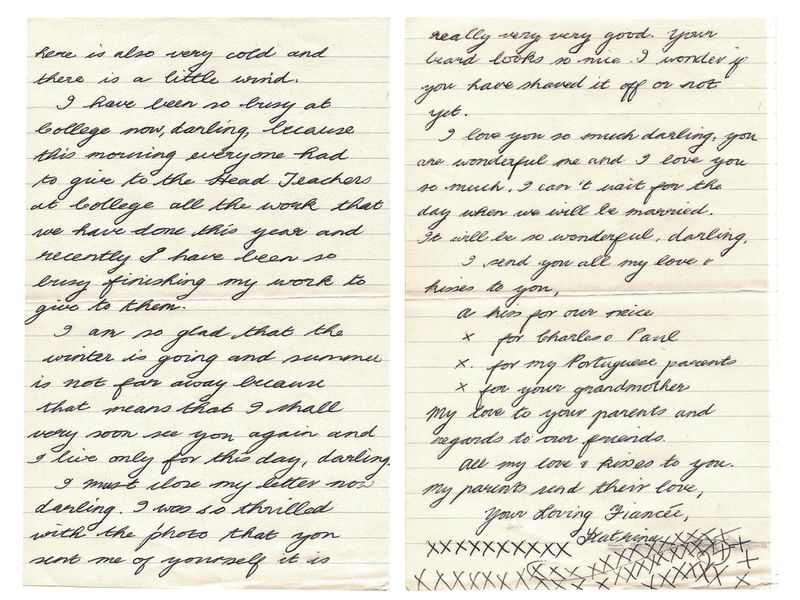 here is also very cold and
there is a little wind.
I have been so busy at
College now, darling, because
this morning everyone had
to give to the Head Teachers
at College all the work that
we have done this year and
recently I have been so
busy finishing my work to
give to them.
I am so glad that the
winter is going and summer
is not far away because
that means that I shall
very soon see you again and
I live only for this day, darling.
I must close my letter now
darling. I was so thrilled
with the photo that you
sent me of yourself it is
really very very good. Your
beard looks so nice. I wonder if
you have shaved it off or not
yet.
I love you so much darling, you
are wonderful me and I love you
so much, I can't wait for the
day when we will be married.
It will be so wonderful, darling,
I send you all my love &
kisses to you,
A kiss for our neice
x for Charles & Paul
x. for my Portuguese parents
x for your grandmother
My love to your parents and
regards to our friends.
All my love & kisses to you.
My parents send their love,
Your Loving Fiancée,
Katrina
XXXXXXXXXX